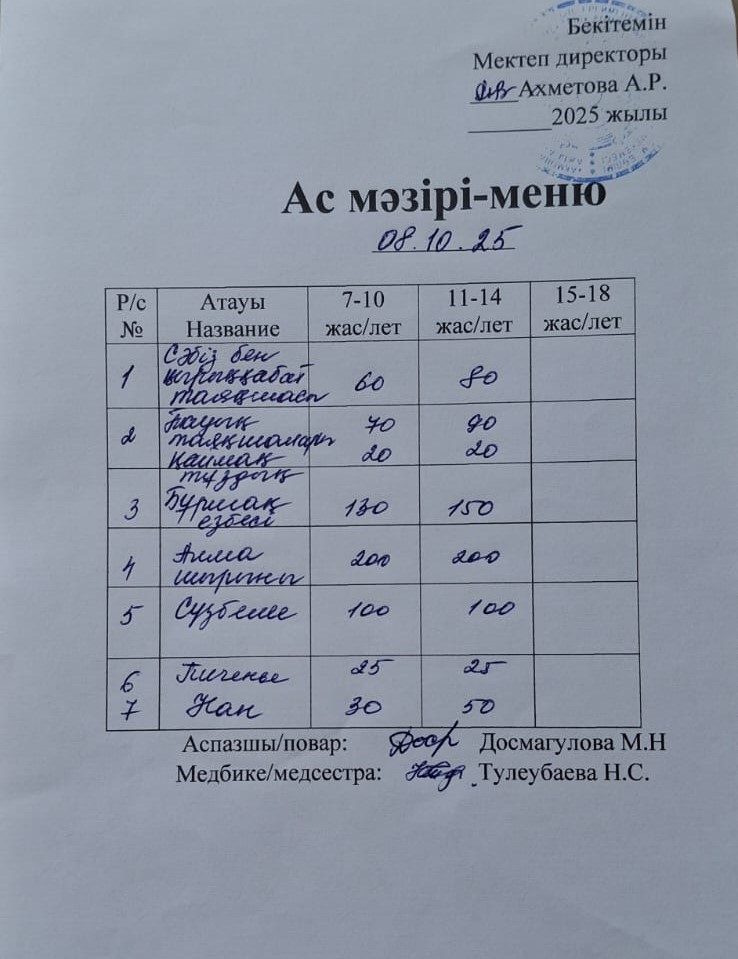 Бекітемін
Мектеп директоры
Ахметова А.Р.
2025 жылы
Ас мәзірі-меню
08.10.25
Р/с № Атауы Название 7-10 жас/лет 11-14 жас/лет 15-18 жас/лет
1 Сәбіз бен қырыққабат таяқшасы 60 80
2 Тауық таяқшалары 70 90
қаймақ тұздық 20 20
3 Бұршақ езбесі 130 150
4 Алма шырыны 200 200
5 Сүзбеше 100 100
6 Печенье 25 25
7 Нан 30 50
Аспазшы/повар: Досмагулова М.Н
Медбике/медсестра: Тулеубаева Н.С.